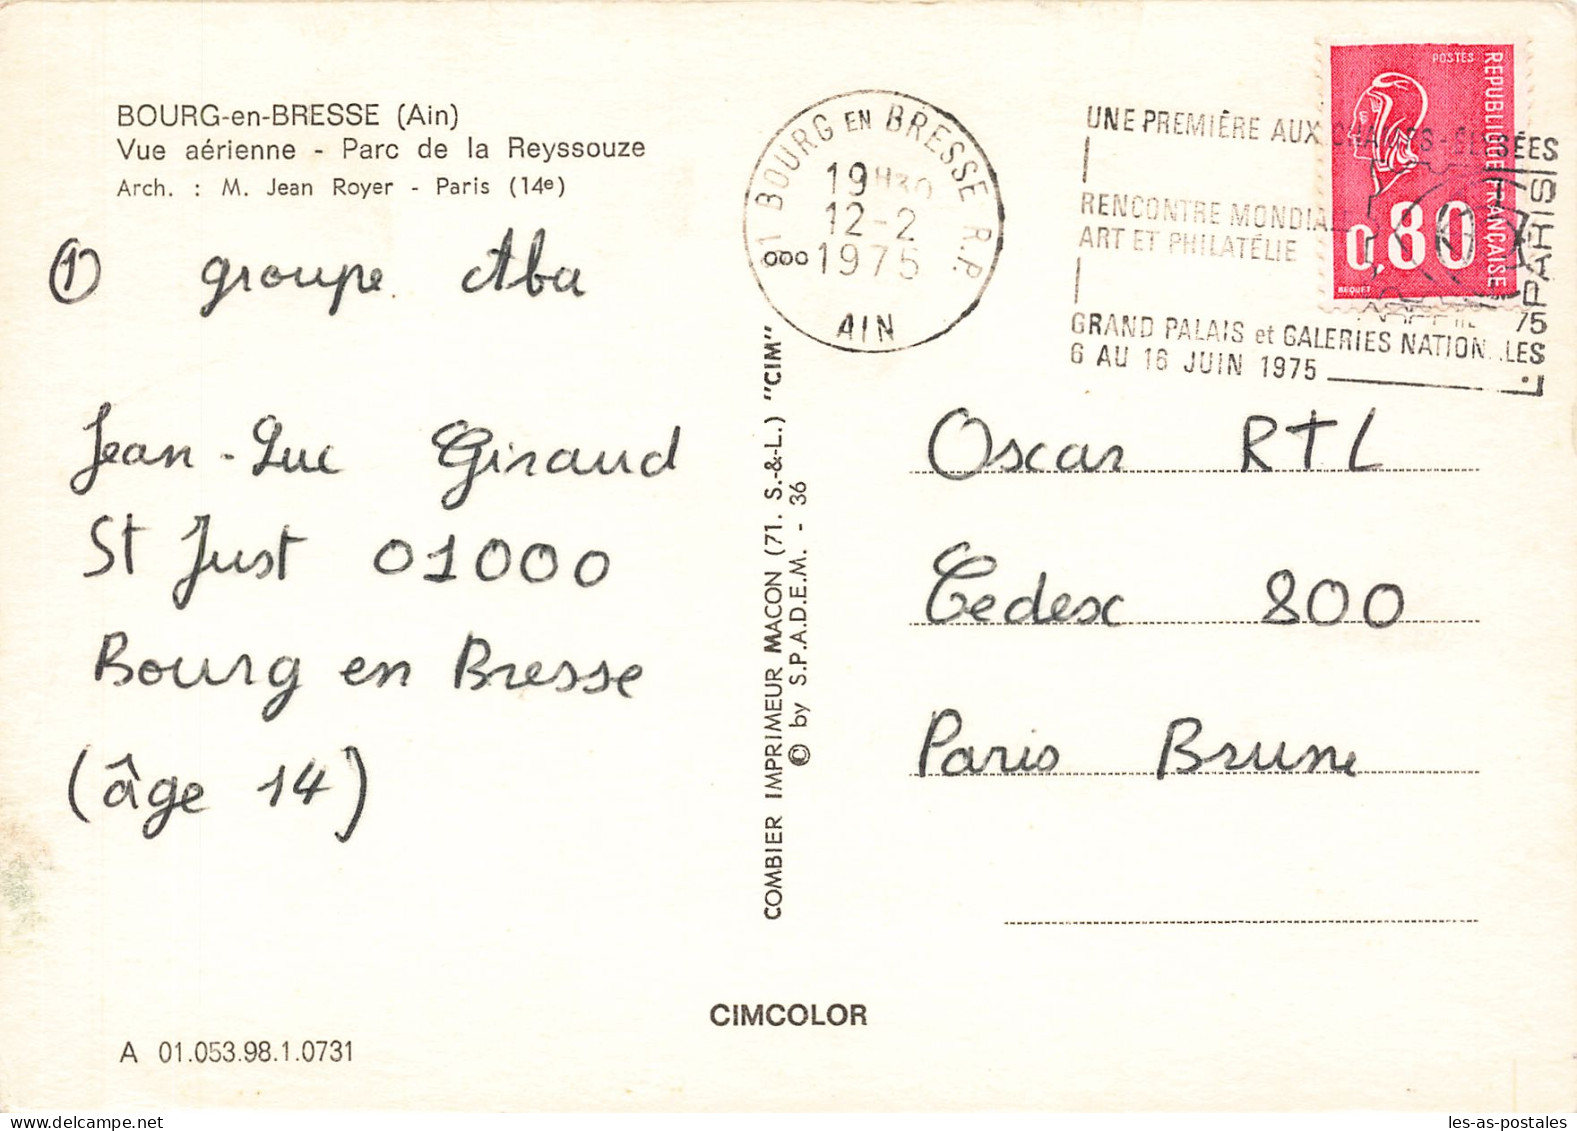 BOURG-en-BRESSE (Ain)
Vue aérienne - Parc de la Reyssouze
Arch. : M. Jean Royer - Paris (14e)
① groupe Aba
Jean-Luc Giraud
St Just 01000
Bourg en Bresse
(âge 14)
A 01.053.98.1.0731
COMBIER IMPRIMEUR MACON (71. S.-&-L.) "CIM"
© by S.P.A.D.E.M. - 36
CIMCOLOR
01 BOURG EN BRESSE R.P.
19H30
12-2
1975
AIN
UNE PREMIÈRE AUX CHAMPS-ELYSÉES
RENCONTRE MONDIALE
ART ET PHILATÉLIE
GRAND PALAIS et GALERIES NATIONALES
6 AU 16 JUIN 1975
POSTES
REPUBLIQUE FRANÇAISE
0,80
BEQUET
Oscar RTL
Cedesc 800
Paris Brune
les-as-postales